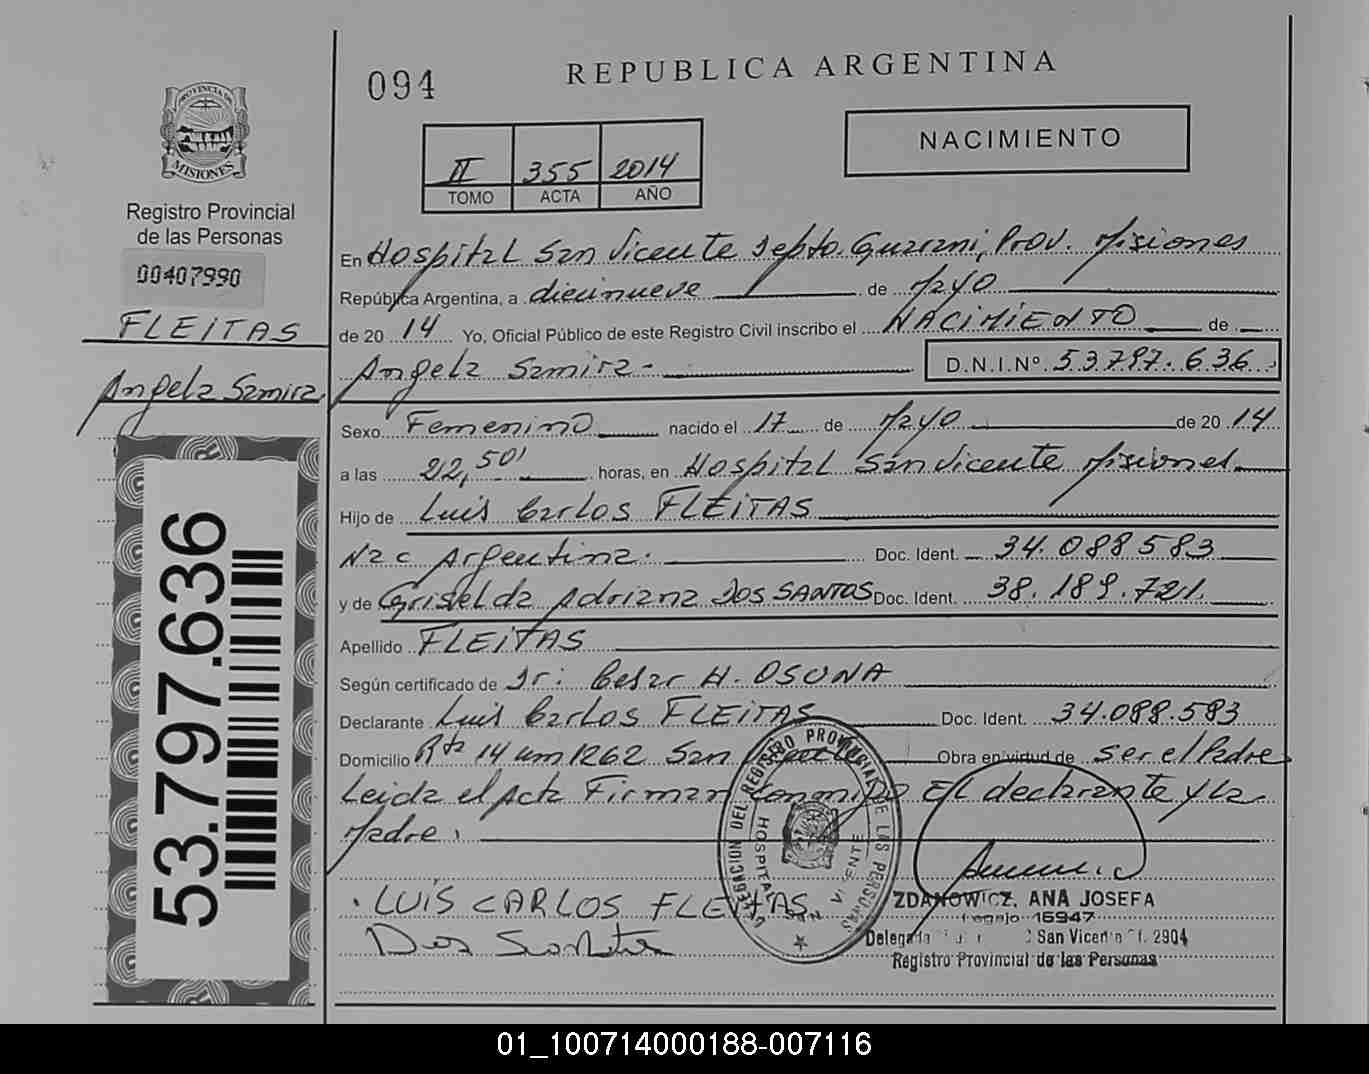 094
REPUBLICA ARGENTINA
NACIMIENTO
II 355 2014
TOMO ACTA AÑO
PROVINCIA DE
MISIONES
Registro Provincial
de las Personas
00407990
FLEITAS
Angela Samira
53.797.636
En Hospital San Vicente Depto. Guarani, Prov. Misiones
República Argentina, a diecinueve de Mayo
de 20 14 Yo, Oficial Público de este Registro Civil inscribo el NACIMIENTO de
Angela Samira - D.N.I.Nº 53.797.636
Sexo Femenino nacido el 17 de Mayo de 20 14
a las 22,50' horas, en Hospital San Vicente Misiones
Hijo de Luis Carlos FLEITAS
Nac Argentina. Doc. Ident. 34.088583
y de Griselda Adriana DOS SANTOS Doc. Ident. 38.189.721
Apellido FLEITAS
Según certificado de Dr: Cesar H. OSUNA
Declarante Luis Carlos FLEITAS Doc. Ident. 34.088.583
Domicilio Rta 14 Km 1262 San Obra en virtud de ser el Padre
Leida el Acta Firman Conmigo El declarante y La
Madre.
LUIS CARLOS FLEITAS
Dos Santos
DELEGACION DEL REGISTRO PROVINCIAL DE LAS PERSONAS
HOSPITAL SAN VICENTE
ZDANOWICZ, ANA JOSEFA
Legajo 16947
Delegada San Vicente 2904
Registro Provincial de las Personas
01_100714000188-007116